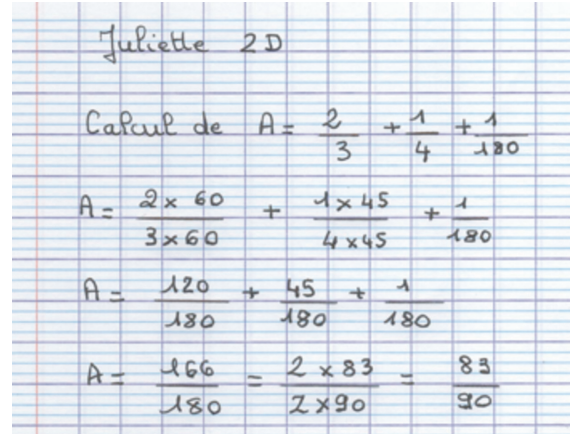 Juliette 2D
Calcul de A = 2/3 + 1/4 + 1/180
A = 2 × 60 / 3 × 60 + 1 × 45 / 4 × 45 + 1/180
A = 120/180 + 45/180 + 1/180
A = 166/180 = 2 × 83 / 2 × 90 = 83/90